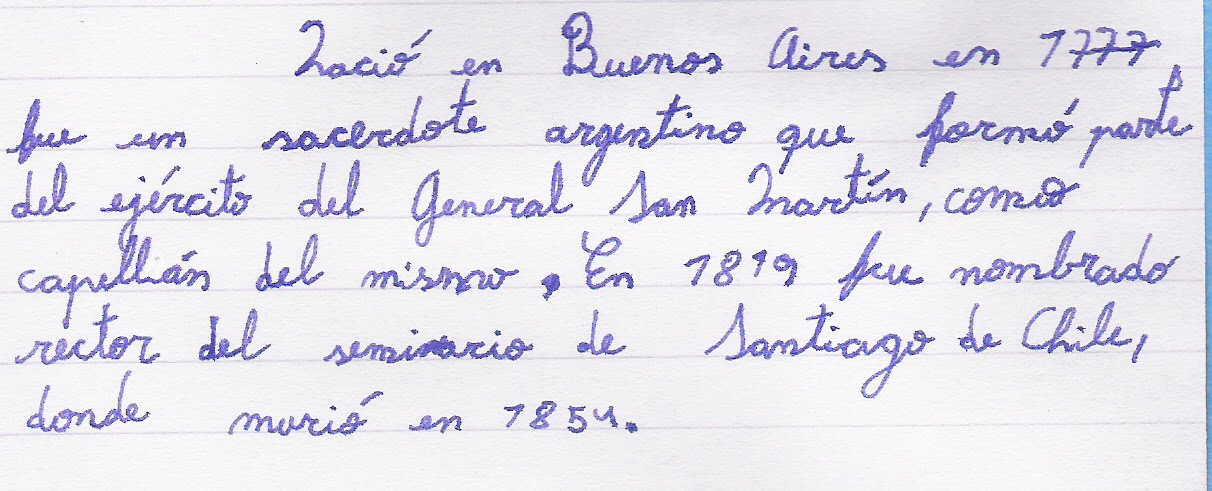 Nació en Buenos Aires en 1777,
fue un sacerdote argentino que formó parte
del ejército del General San Martín, como
capellián del mismo. En 1819 fue nombrado
rector del seminario de Santiago de Chile,
donde murió en 1854.